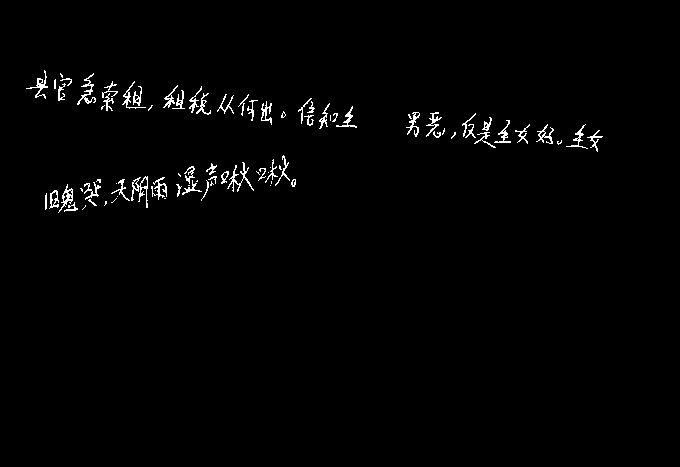 县官急索租,租税从何出。信知生 男恶,反是生女好。生女
旧鬼哭,天阴雨湿声啾啾。